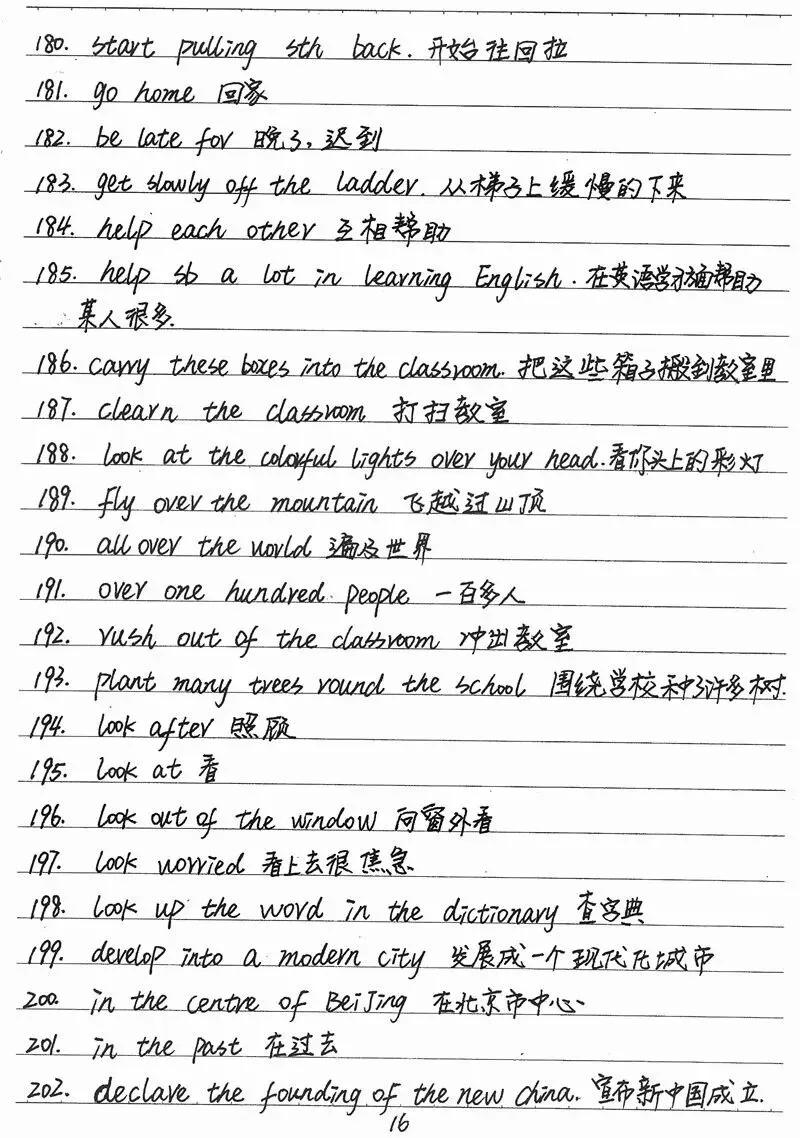 180. start pulling sth back. 开始往回拉
181. go home 回家
182. be late for 晚了,迟到
183. get slowly off the ladder. 从梯子上缓慢的下来
184. help each other 互相帮助
185. help sb a lot in learning English. 在英语学习方面帮助
某人很多.
186. carry these boxes into the classroom. 把这些箱子搬到教室里
187. clearn the classroom 打扫教室
188. look at the colorful lights over your head. 看你头上的彩灯
189. fly over the mountain 飞越过山顶
190. all over the world 遍及世界
191. over one hundred people 一百多人
192. rush out of the classroom 冲出教室
193. plant many trees round the school 围绕学校种了许多树.
194. look after 照顾
195. look at 看
196. look out of the window 向窗外看
197. look worried 看上去很焦急
198. look up the word in the dictionary 查字典
199. develop into a modern city 发展成一个现代化城市
200. in the centre of BeiJing 在北京市中心
201. in the past 在过去
202. declare the founding of the new China. 宣布新中国成立.
16